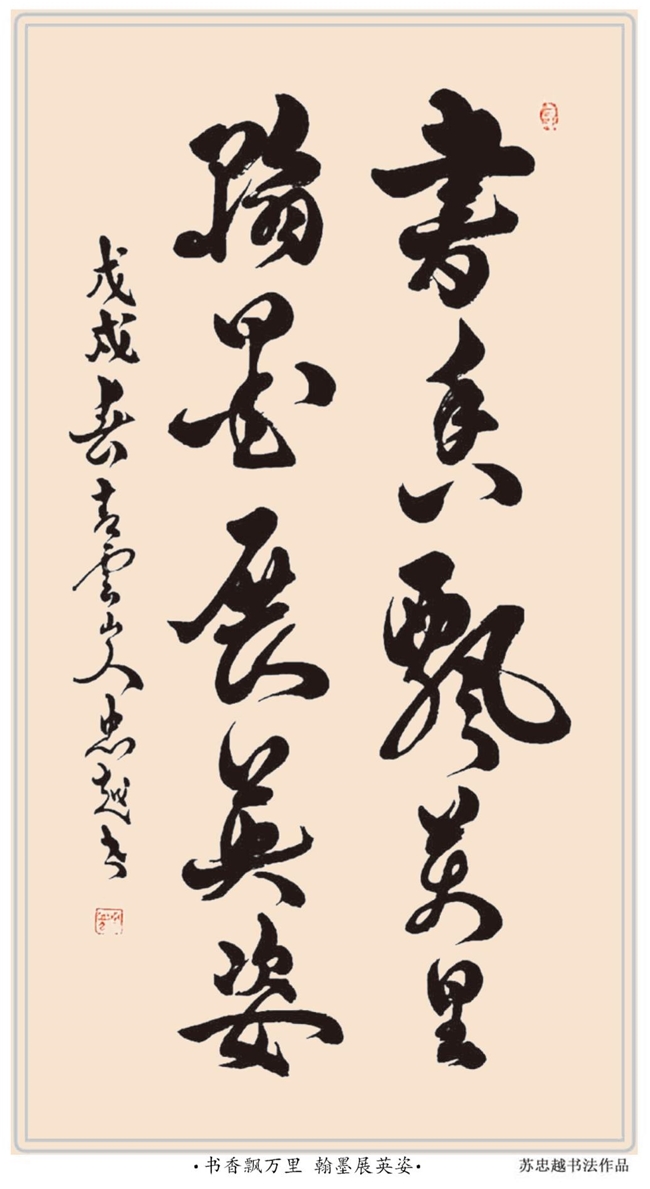 書香飄萬里
翰墨展英姿
戊戌春青雲山人忠越书
·书香飘万里 翰墨展英姿·
苏忠越书法作品